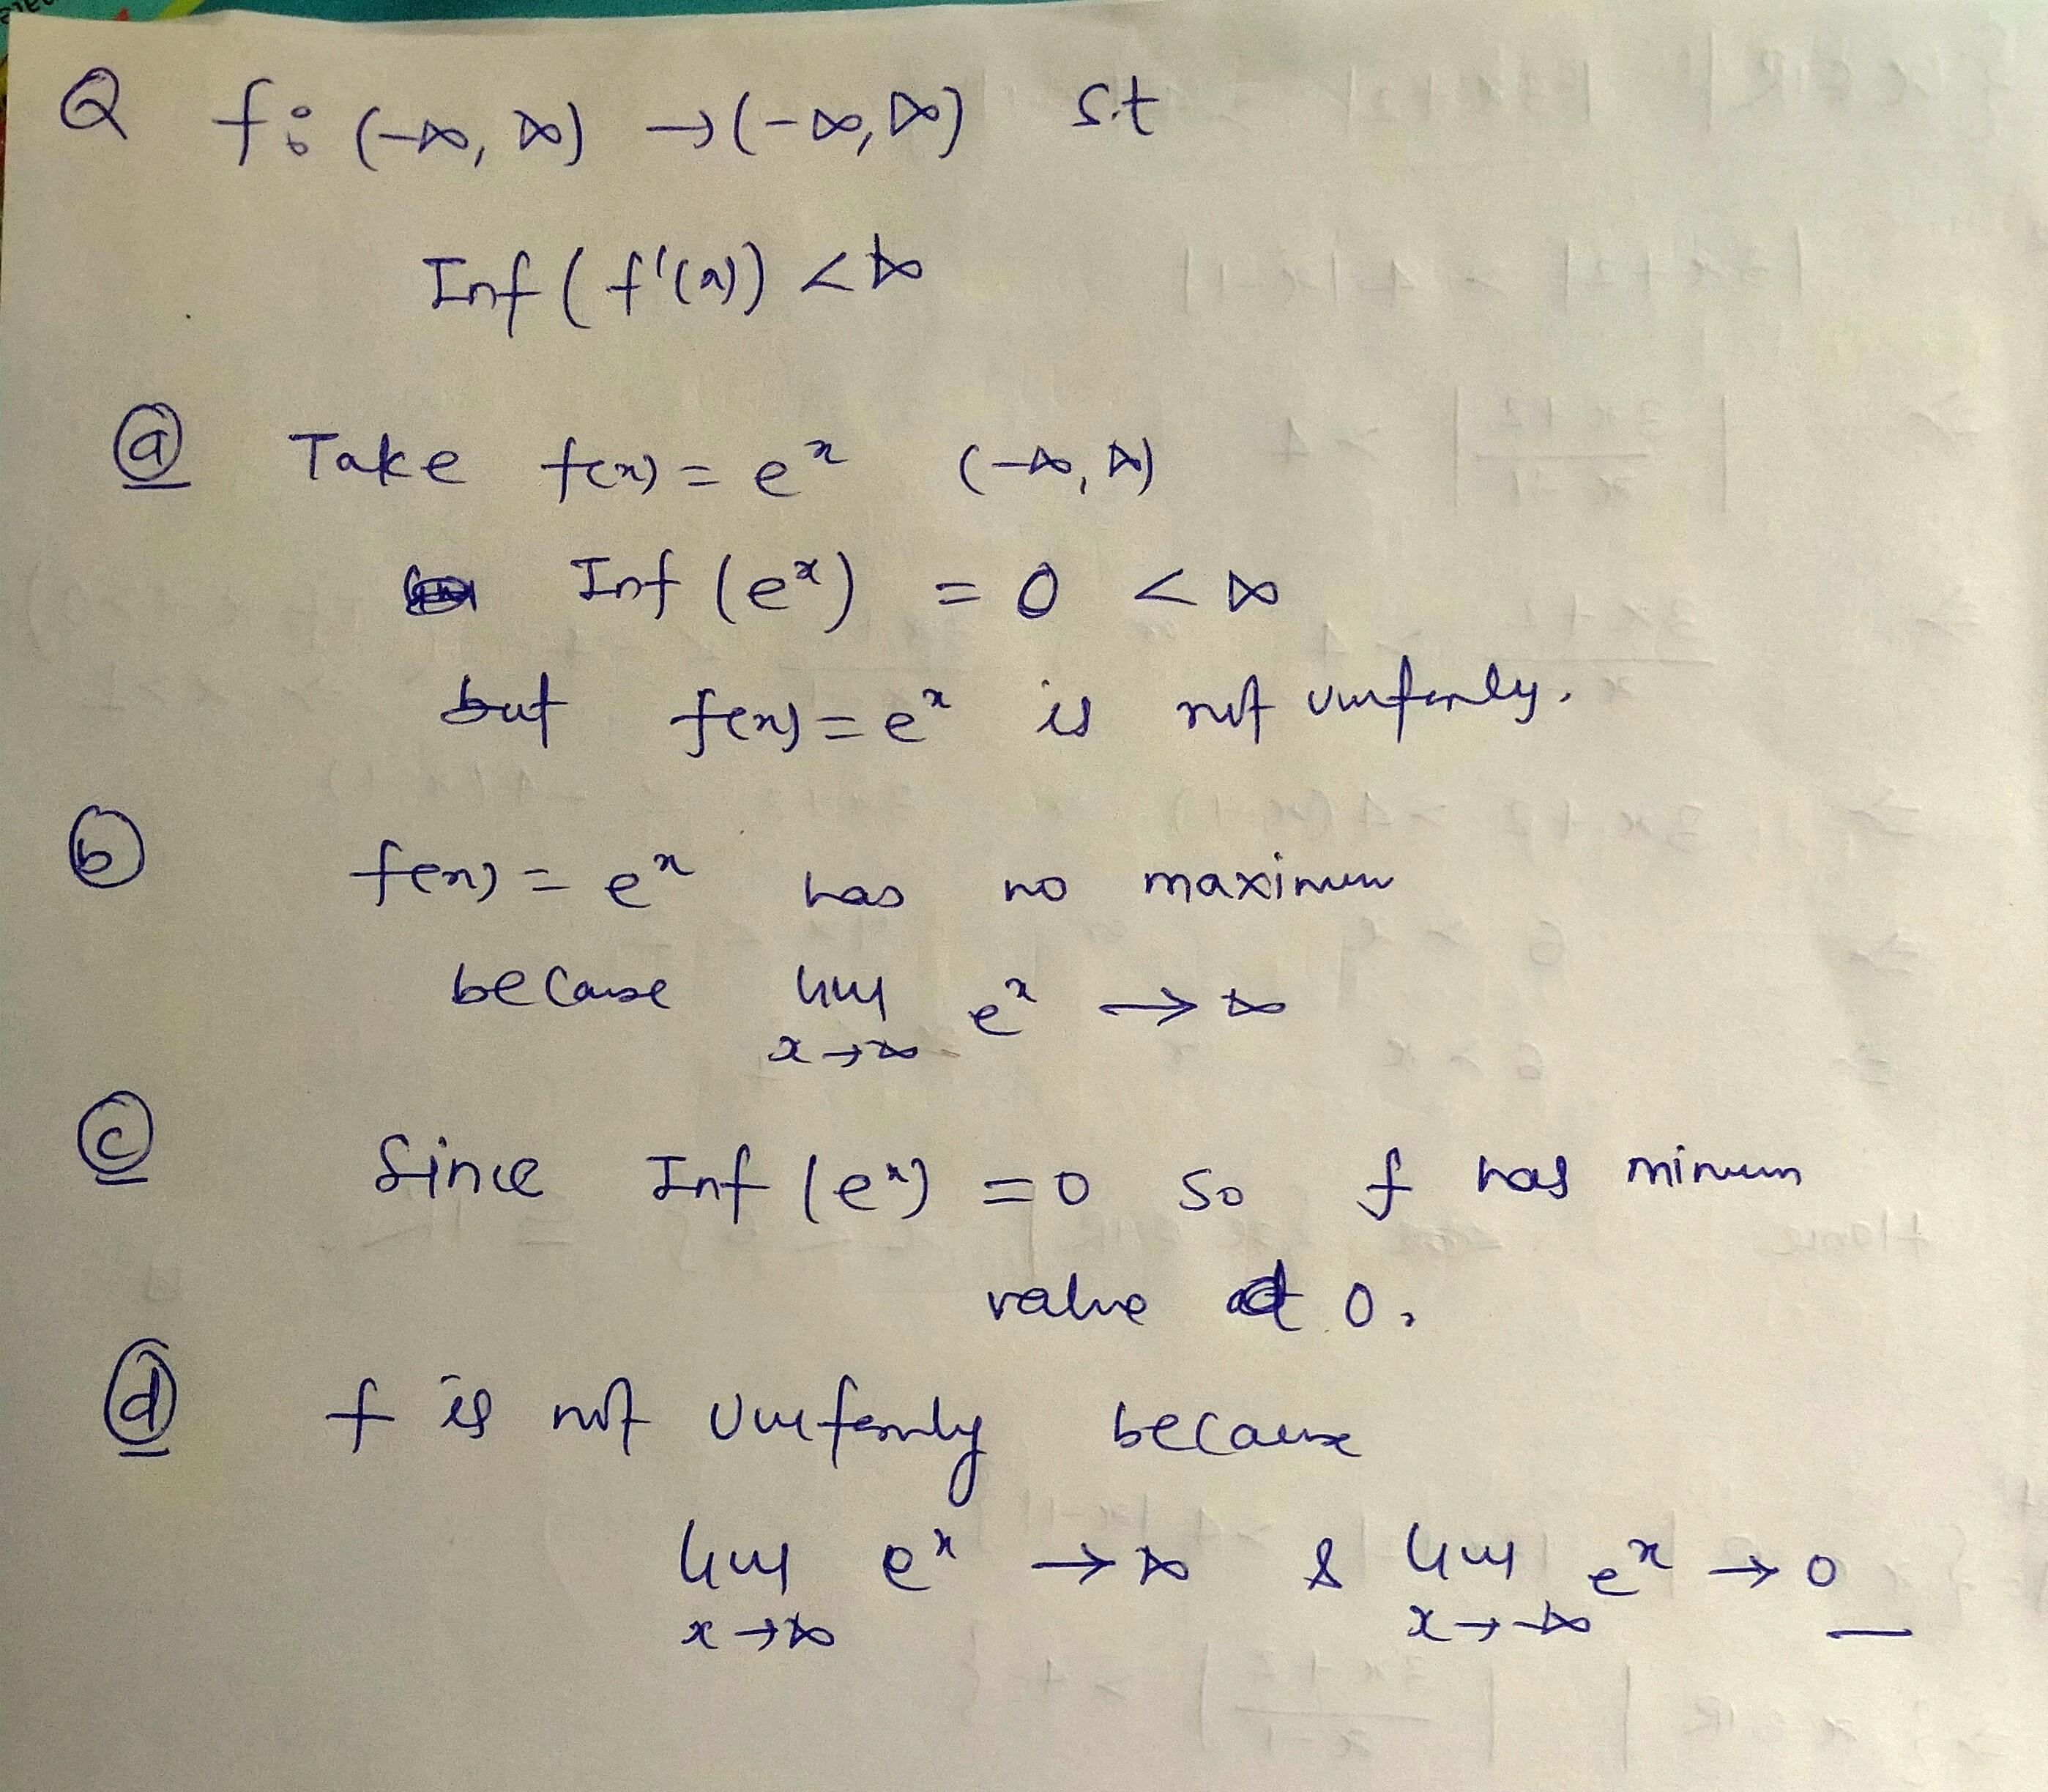 Q f: (-∞, ∞) → (-∞, ∞) s.t
Inf ( f'(x)) < ∞
(a) Take f(x) = e^x (-∞, ∞)
Inf (e^x) = 0 < ∞
but f(x) = e^x is not unifomly.
(b) f(x) = e^x has no maximum
because lim x→∞ e^x → ∞
(c) Since Inf (e^x) = 0 so f has minimum
value at 0.
(d) f is not uniformly because
lim x→∞ e^x → ∞ & lim x→-∞ e^x → 0